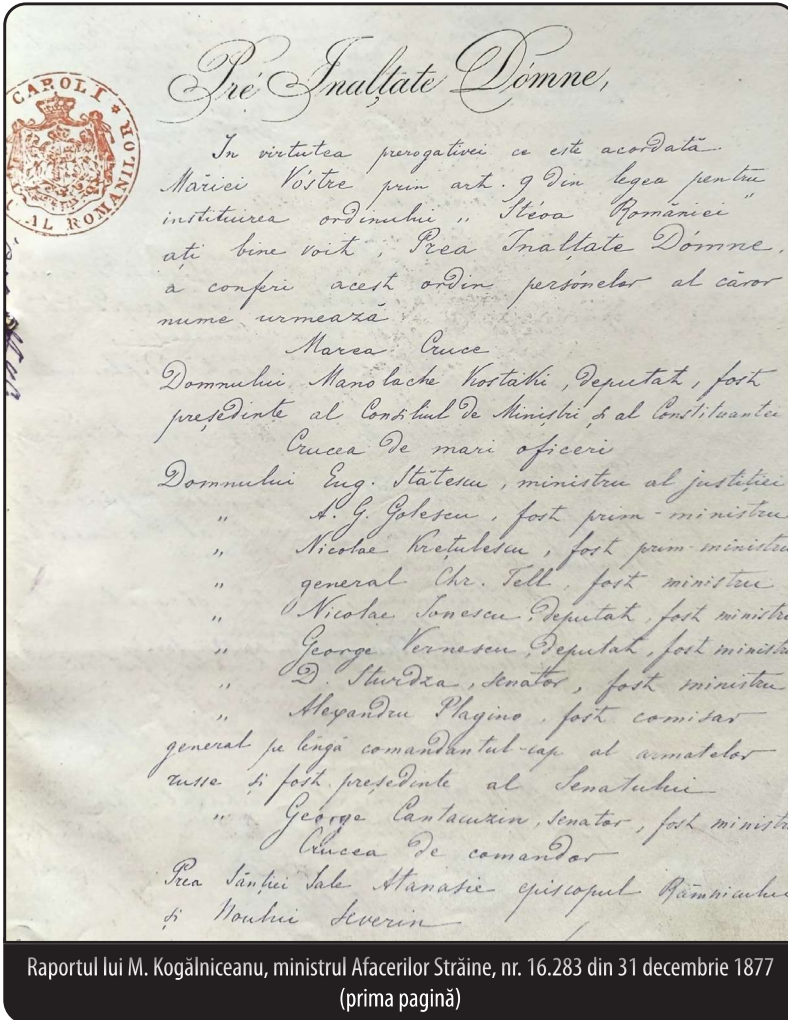 CAROL I *
AL ROMANILOR
Pré Inalţate Dómne,
In virtutea prerogativei ce este acordată
Măriei Vóstre prin art. 9 din legea pentru
instituirea ordinului „Stéoa României"
aţi bine voit, Prea Inalţate Dómne,
a conferi acest ordin persónelor al căror
nume urmează
Marea Cruce
Domnului Manolache Kostaki, deputat, fost
preşedinte al Consiliul de Miniştri şi al Constituantei
Crucea de mari oficeri
Domnului Eug. Stătescu, ministru al justiţiei
„ A. G. Golescu, fost prim-ministru
„ Nicolae Kreţulescu, fost prim-ministru
„ general Chr. Tell, fost ministru
„ Nicolae Ionescu, deputat, fost ministru
„ George Vernescu, deputat, fost ministru
„ D. Sturdza, senator, fost ministru
„ Alexandru Plagino, fost comisar
general pe lêngă comandantul-cap al armatelor
russe şi fost preşedinte al Senatului
„ George Cantacuzin, senator, fost ministru
Crucea de comandor
Prea Sânţiei Sale Atanasie episcopul Râmnicului
şi Noului Severin
Raportul lui M. Kogălniceanu, ministrul Afacerilor Străine, nr. 16.283 din 31 decembrie 1877
(prima pagină)